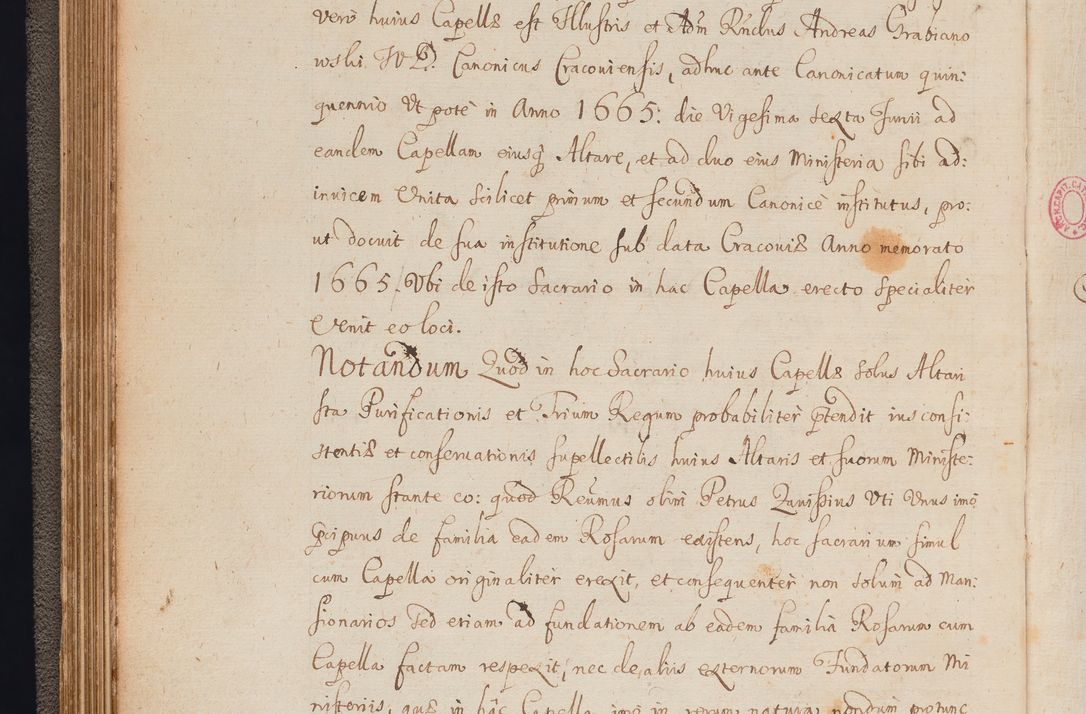 vero huius Capellæ est Illustris et Adm̃ Rñdus Andreas Grabiano
wski Canonicus Cracouiensis, adhuc ante Canonicatum quin:
quennio Vt poté in Anno 1665: die Vigesima Sexta Junii ad
eandem Capellam eiusq̨ Altare, et ad duo eius Ministeria sibi ad:
inuicem Vnita Scilicet primum et secundum Canonicè institutus, pro:
ut docuit de sua institutione sub data Cracouiæ Anno memorato
1665. Vbi de isto Sacrario in hac Capella erecto Specialiter
Venit eo loci.
Notandum Quod in hoc Sacrario huius Capellæ Solus Altari
sta Purificationis et Trium Regum probabiliter ꝑtendit ius consi:
stentiæ et conseruationis supellectilis huius Altaris et suorum Ministe:
riorum stante eo: quod Reũmus olim Petrus Vti Vnus imo
ꝑcipuus de familia eadem Rosarum existens, hoc sacrarium simul
cum Capella originaliter erexit, et consequenter non Solum ad Man:
sionarios Sed etiam ad fundationem ab eadem familia Rosarum cum
Capella factam respexit, nec de aliis externorum Fundatorum Mi
nisteriis, quæ in hac Capella imo in rerum natura nondum protunc
ARCH. CAPIT.